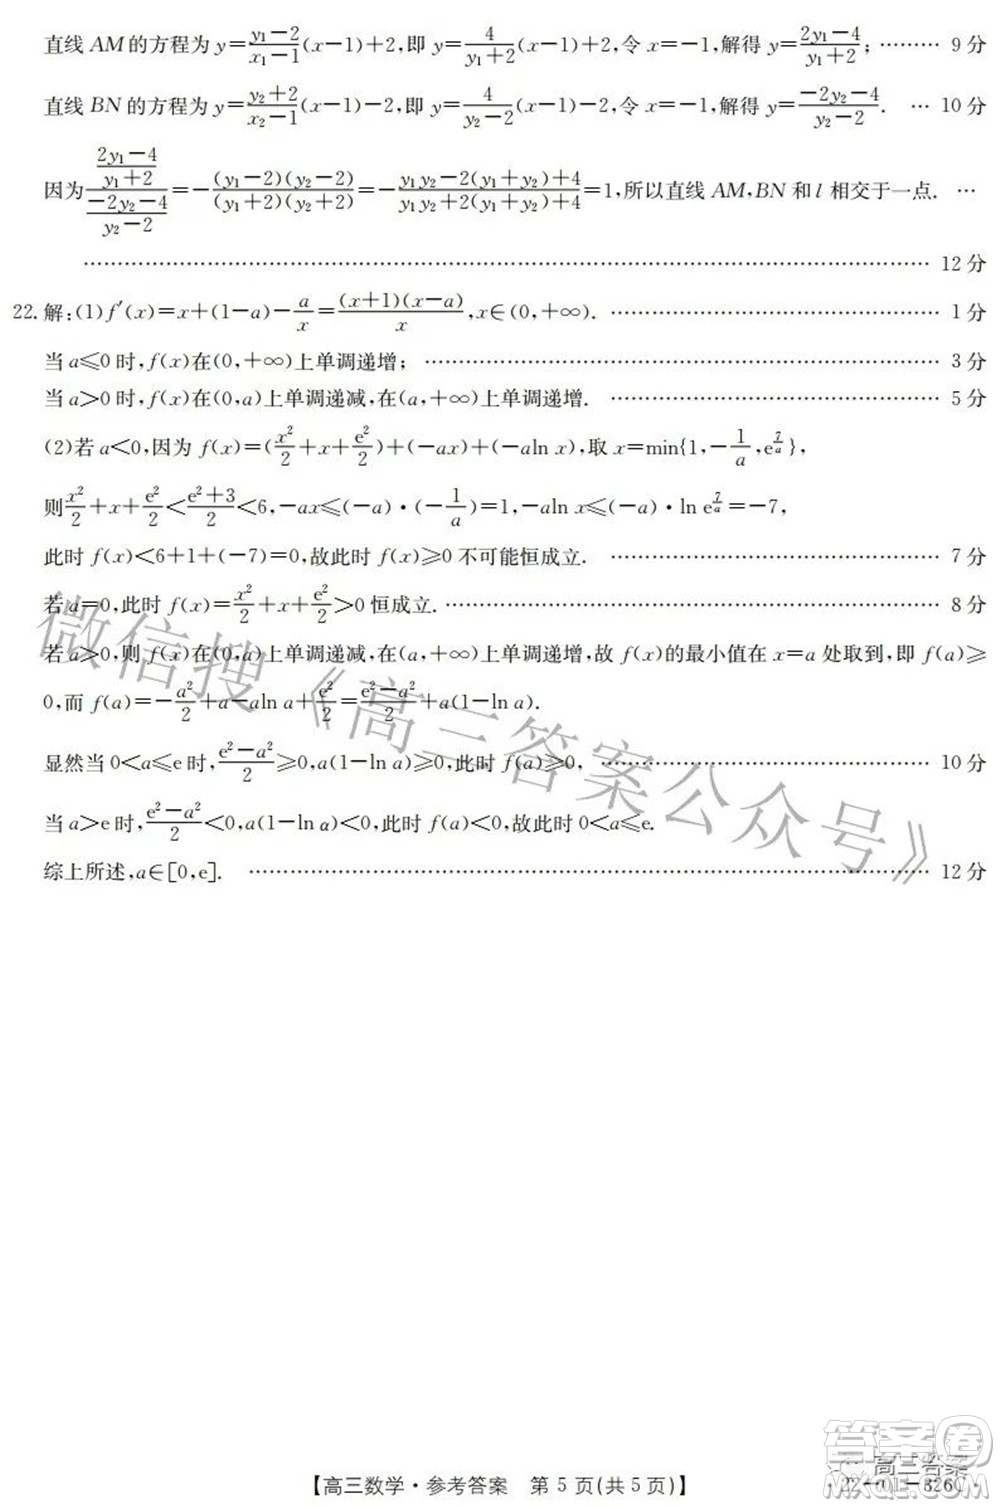 直线AM的方程为y=\frac{y₁-2}{x₁-1}(x-1)+2,即y=\frac{4}{y₁+2}(x-1)+2,令x=-1,解得y=\frac{2y₁-4}{y₁+2};……… 9分
直线BN的方程为y=\frac{y₂+2}{x₂-1}(x-1)-2,即y=\frac{4}{y₂-2}(x-1)-2,令x=-1,解得y=\frac{-2y₂-4}{y₂-2}. … 10分
因为\frac{\frac{2y₁-4}{y₁+2}}{\frac{-2y₂-4}{y₂-2}}=-\frac{(y₁-2)(y₂-2)}{(y₁+2)(y₂+2)}=-\frac{y₁y₂-2(y₁+y₂)+4}{y₁y₂+2(y₁+y₂)+4}=1,所以直线AM,BN和l相交于一点. …
……………………………………………………………………………… 12分
22.解:(1)f′(x)=x+(1-a)-\frac{a}{x}=\frac{(x+1)(x-a)}{x},x∈(0,+∞). ………………………………… 1分
当a≤0时,f(x)在(0,+∞)上单调递增; ……………………………………………………… 3分
当a>0时,f(x)在(0,a)上单调递减,在(a,+∞)上单调递增. …………………………………… 5分
(2)若a<0,因为f(x)=(\frac{x²}{2}+x+\frac{e²}{2})+(-ax)+(-aln x),取x=min{1,-\frac{1}{a},e^{\frac{7}{a}}},
则\frac{x²}{2}+x+\frac{e²}{2}<\frac{e²+3}{2}<6,-ax≤(-a)·(-\frac{1}{a})=1,-aln x≤(-a)·ln e^{\frac{7}{a}}=-7,
此时f(x)<6+1+(-7)=0,故此时f(x)≥0不可能恒成立. ………………………………… 7分
若a=0,此时f(x)=\frac{x²}{2}+x+\frac{e²}{2}>0恒成立.…………………………………………………… 8分
若a>0,则f(x)在(0,a)上单调递减,在(a,+∞)上单调递增,故f(x)的最小值在x=a处取到,即f(a)≥
0,而f(a)=-\frac{a²}{2}+a-aln a+\frac{e²}{2}=\frac{e²-a²}{2}+a(1-ln a).
显然当0<a≤e时,\frac{e²-a²}{2}≥0,a(1-ln a)≥0,此时f(a)≥0, ………………………………… 10分
当a>e时,\frac{e²-a²}{2}<0,a(1-ln α)<0,此时f(a)<0,故此时0<a≤e.
综上所述,a∈[0,e]. ………………………………………………………………………… 12分
微信搜《高三答案公众号》
答案圈
高三答案
【高三数学·参考答案 第5页(共5页)】
·22-01-326C·